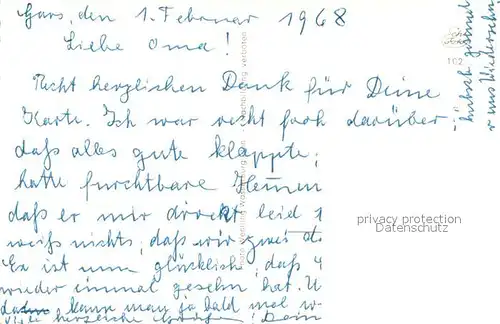 Gars, den 1. Februar 1968
Liebe Oma!
Recht herzlichen Dank für Deine
Karte. Ich war recht froh darüber
daß alles gute klappte,
hatte furchtbare
daß er mir direkt leid
weiß nichts, daß wir zwei
Er ist nun glücklich, daß
wieder einmal gesehn hat. U
kann man ja bald mal
viele herzliche Dein
hübsch
Wiedersehn
102
privacy protection
Datenschutz